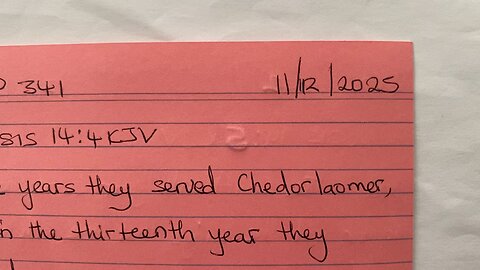 341 11/12/2025
14:4 KJV
years they served Chedorlaomer,
the thirteenth year they